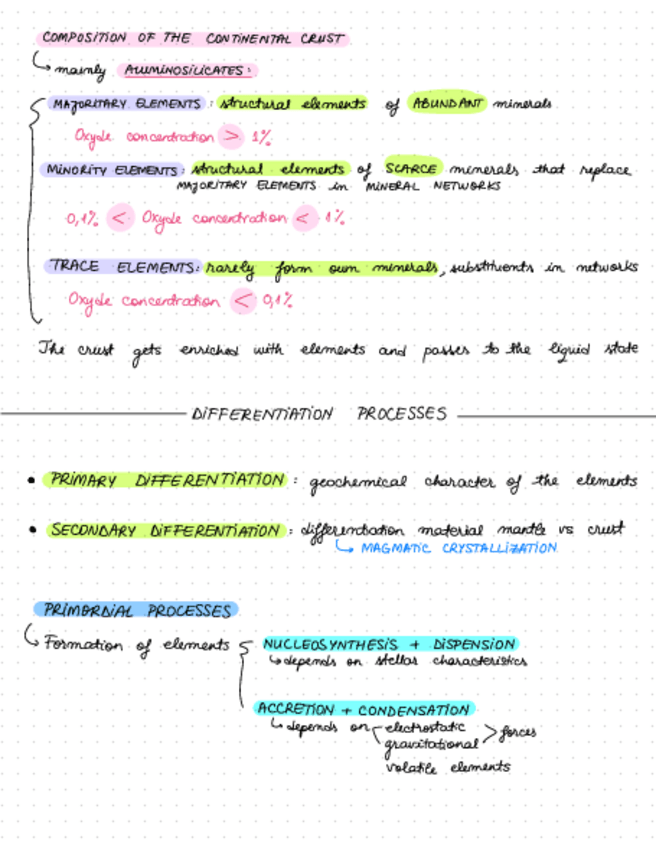 COMPOSITION OF THE CONTINENTAL CRUST
mainly ALUMINOSILICATES:
MAJORITARY ELEMENTS: structural elements of ABUNDANT minerals
Oxyde concentration > 1%
MINORITY ELEMENTS: structural elements of SCARCE minerals that replace
MAJORITARY ELEMENTS in MINERAL NETWORKS
0,1% < Oxyde concentration < 1%
TRACE ELEMENTS: rarely form own minerals, substituents in networks
Oxyde concentration < 0,1%
The crust gets enriched with elements and passes to the liquid state
DIFFERENTIATION PROCESSES
• PRIMARY DIFFERENTIATION: geochemical character of the elements
• SECONDARY DIFFERENTIATION: differentiation material mantle vs crust
MAGMATIC CRYSTALLIZATION
PRIMORDIAL PROCESSES
Formation of elements NUCLEOSYNTHESIS + DISPENSION
depends on stellar characteristics
ACCRETION + CONDENSATION
depends on electrostatic
gravitational forces
volatile elements